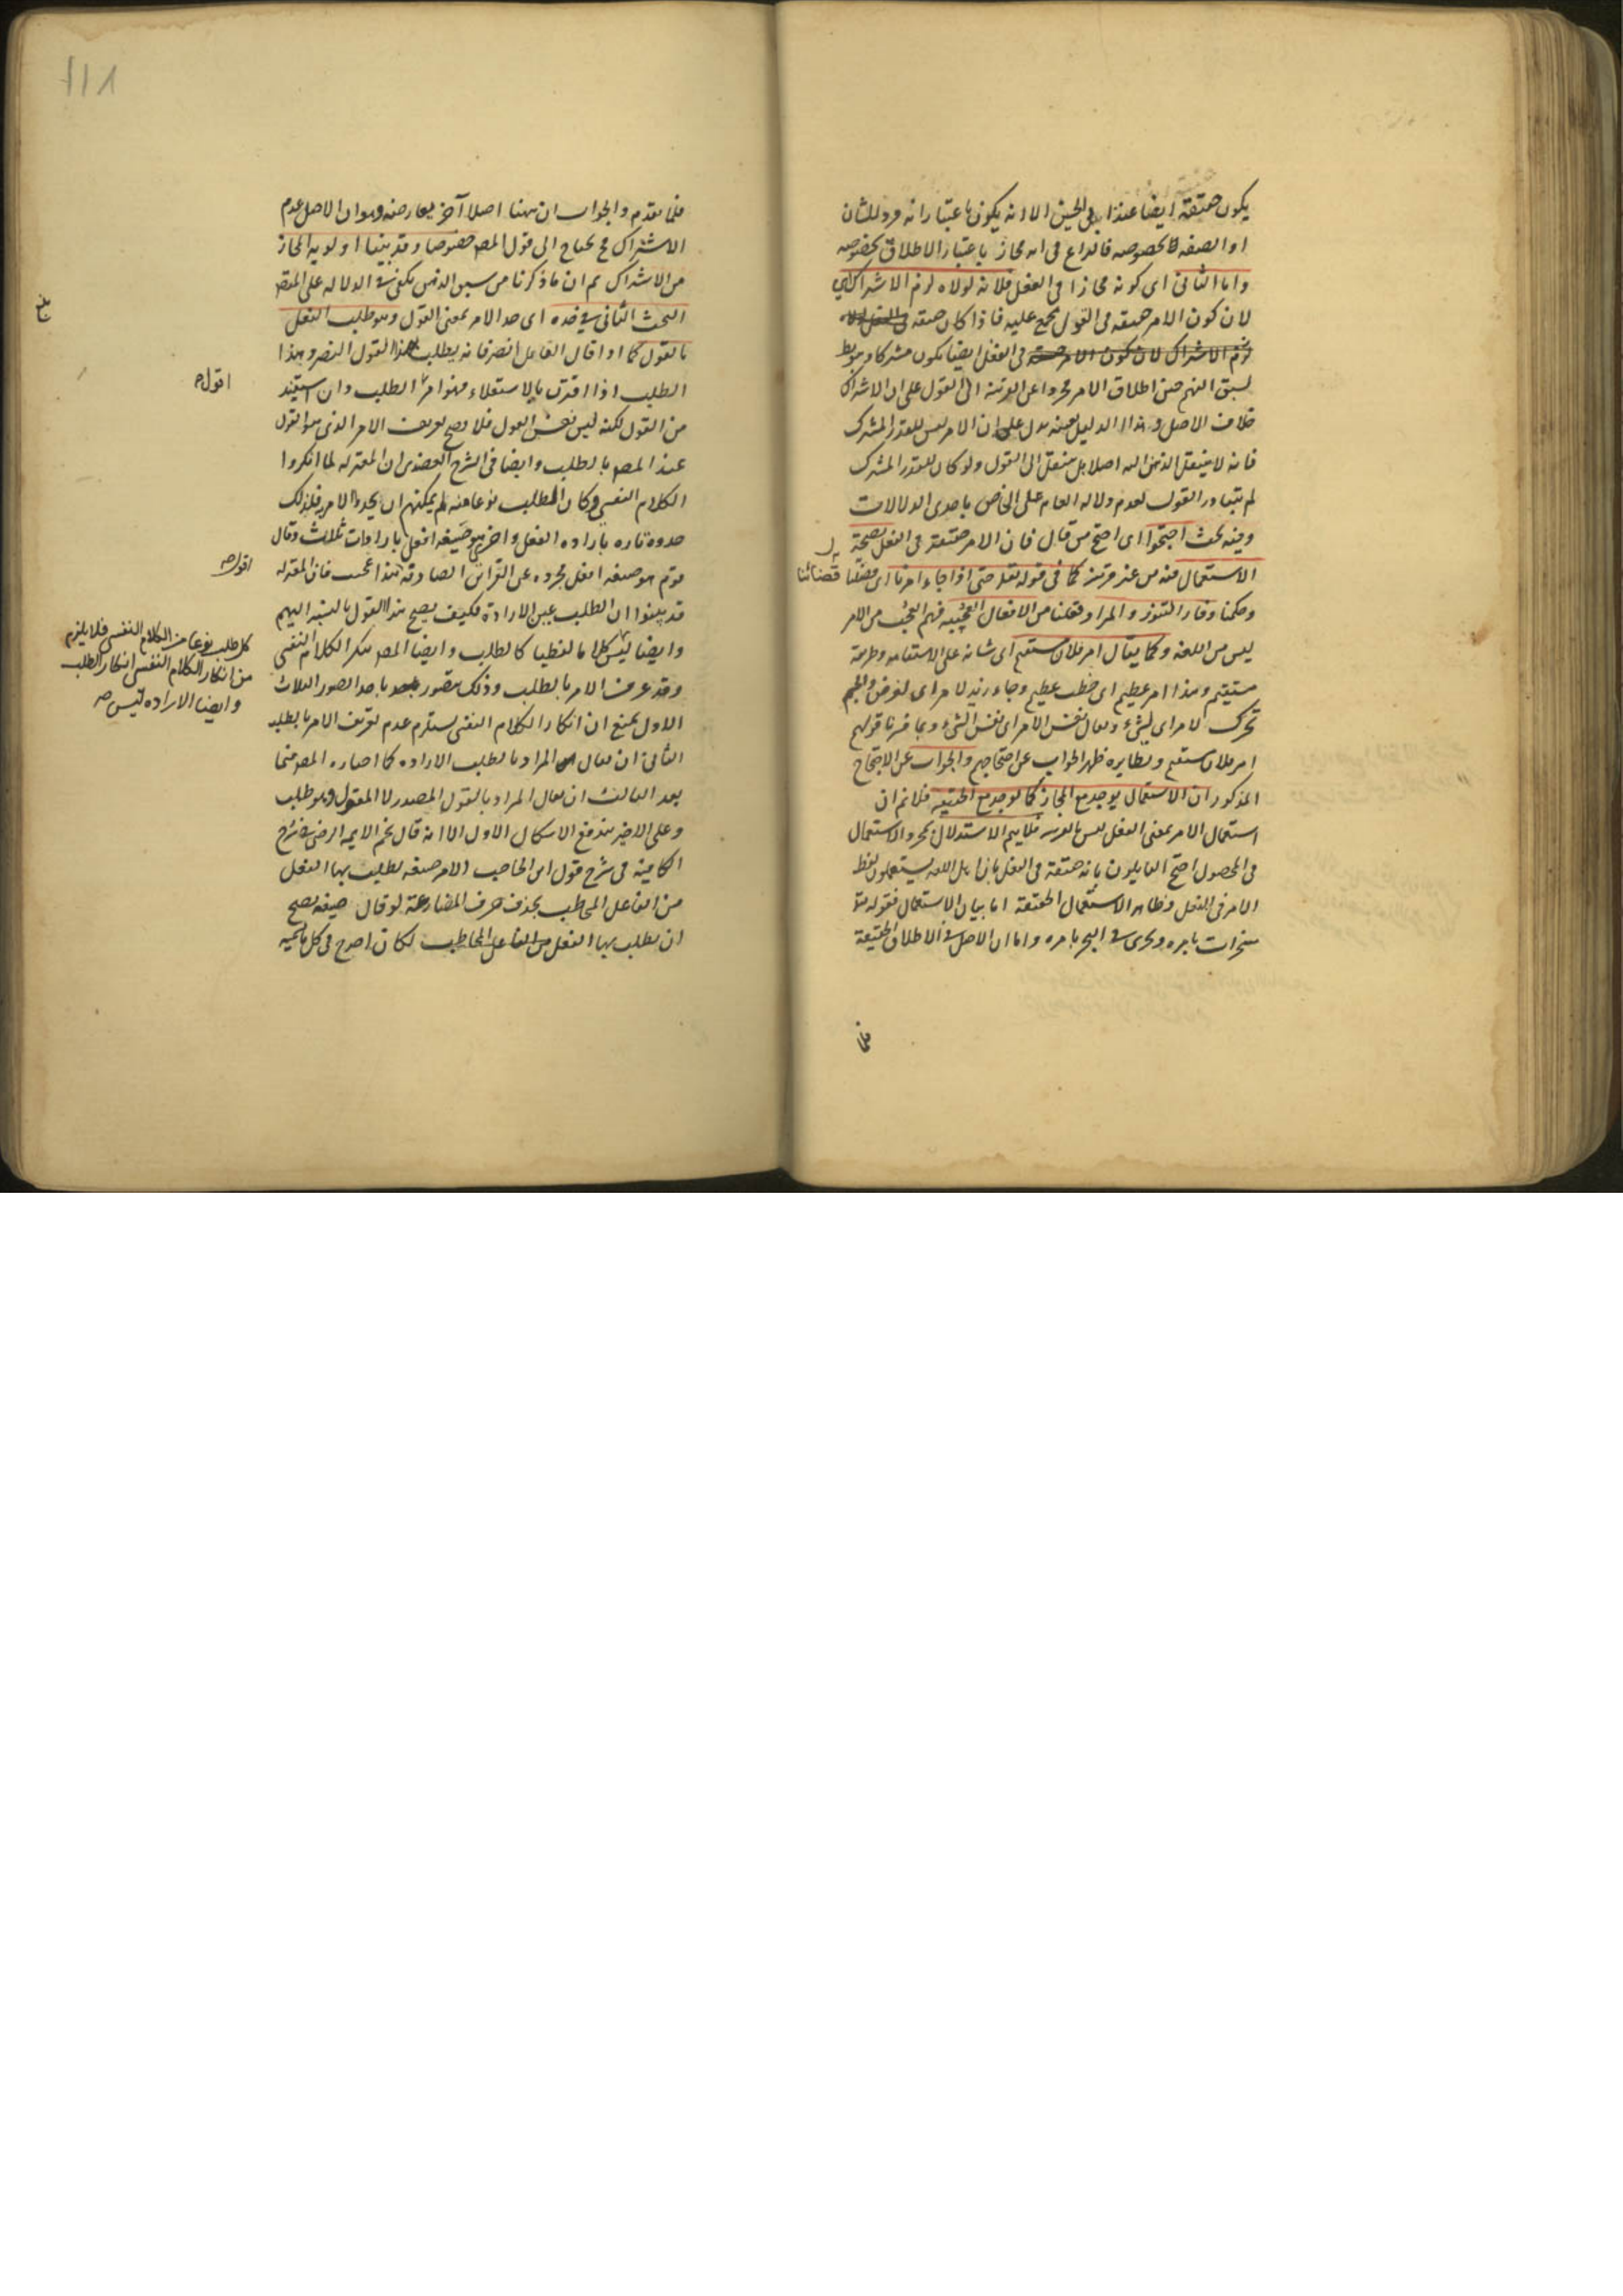 يكون حقيقة ايضا عندنا بل الحيثى الا انه يكون باعتبار انه فرد للشان
او الصفة لا لخصوصه فالنزاع فى انه مجاز باعتبار الاطلاق بخصوصه
واما الثانى اى كونه مجازا فى الفعل فلانه لولاه لزم الاشتراك اى
لان كون الامر حقيقة فى القول مجمع عليه فاذا كان حقيقة
فى الفعل ايضا يكون مشتركا وهو بط
لسبق الفهم حين اطلاق الامر مجردا عن القرينة الى القول على ان الاشتراك
خلاف الاصل وهذا الدليل بعينه يدل على ان الامر ليس للقدر المشترك
فانه لا ينتقل الذهن اليه اصلا بل ينتقل الى القول ولو كان للقدر المشترك
لم يتبادر القول لعدم دلالة العام على الخاص باحدى الدلالات
وفيه بحث احتجوا اى احتج من قال فان الامر حقيقة فى الفعل بصحة
الاستعمال فيه من غير قرينة كما فى قوله تعالى حتى اذا جاء امرنا اى قضائنا
وحكمنا وفار التنور والمراد فعلنا من الافعال العجيبة فهم العجب من الامر
ليس من اللغة وكما يقال امر فلان مستقيم اى شانه على الاستقامة وطريقة
مستقيم وهذا امر عظيم اى خطب عظيم وجاء زيد لامر اى لغرض والجسم
تحرك لامر اى لشىء ويقال نفس الامر اى نفس الشىء وبما قررنا قولهم
امر فلان مستقيم ونظايره ظهر الجواب عن احتجاجهم والجواب عن الاحتجاج
المذكور ان الاستعمال يوجد مع المجاز كما يوجد مع الحقيقة فلا نم ان
استعمال الامر بمعنى الفعل ليس بالقرينة فلا يتم الاستدلال بمجرد الاستعمال
فى المحصول احتج القايلون بانه حقيقة فى الفعل بان اهل اللغة يستعملون لفظ
الامر فى الفعل وظاهر الاستعمال الحقيقة اما بيان الاستعمال فقوله تعالى
مسخرات بامره وتجرى فى البحر بامره واما ان الاصل فى الاطلاق الحقيقة
فلما
قضائنا
١١٨
فلما تقدم والجواب ان ههنا اصلا آخر يعارضه وهو ان الاصل عدم
الاشتراك فح يحتاج الى قول المص خصوصا وقد بينا اولوية المجاز
من الاشتراك ثم ان ما ذكرنا من سبق الذهن يكفى فى الدلالة على المقص
البحث الثانى فى حده اى حد الامر بمعنى القول وهو طلب الفعل
بالقول كما اذا قال القايل انصر فانه يطلب بهذا القول النصر وهذا
الطلب اذا اقترن بالاستعلاء فهو امر الطلب وان استفيد
من القول لكنه ليس نفس القول فلا يصح تعريف الامر الذى هو القول
عند المص بالطلب وايضا فى الشرح العضدى ان المعتزلة لما انكروا
الكلام النفسى وكان الطلب نوعا منه لم يمكنهم ان يحدوا الامر به فلذلك
حدوه تارة بارادة الفعل واخرى هو صيغة افعل بارادات ثلاث وقال
قوم هو صيغة افعل مجردة عن القراين الصارفة هذا عجيب فان المعتزلة
قد بينوا ان الطلب عين الارادة فكيف يصح هذا القول بالنسبة اليهم
وايضا ليس كلاما لفظيا كالطلب وايضا المص منكر الكلام النفسى
وقد عرف الامر بالطلب وذلك متصور باحد الصور الثلاث
الاول يمنع ان انكار الكلام النفسى يستلزم عدم تعريف الامر بالطلب
الثانى ان يقال المراد بالطلب الارادة كما اختاره المص فيما
بعد الثالث ان يقال المراد بالقول المصدر لا المقول وهو طلب
وعلى الاخير يندفع الاشكال الاول الا انه قال نجم الايمة الرضى فى شرح
الكافية فى شرح قول ابن الحاجب الامر صيغة يطلب بها الفعل
من الفاعل المخاطب بحذف حرف المضارعة لو قال صيغة يصح
ان يطلب بها الفعل من الفاعل المخاطب لكان اصرح فى كل ما يسميه
اقول
اقول
كل طلب نوعا من الكلام النفسى فلا يلزم
من انكار الكلام النفسى انكار الطلب
وايضا الارادة ليس